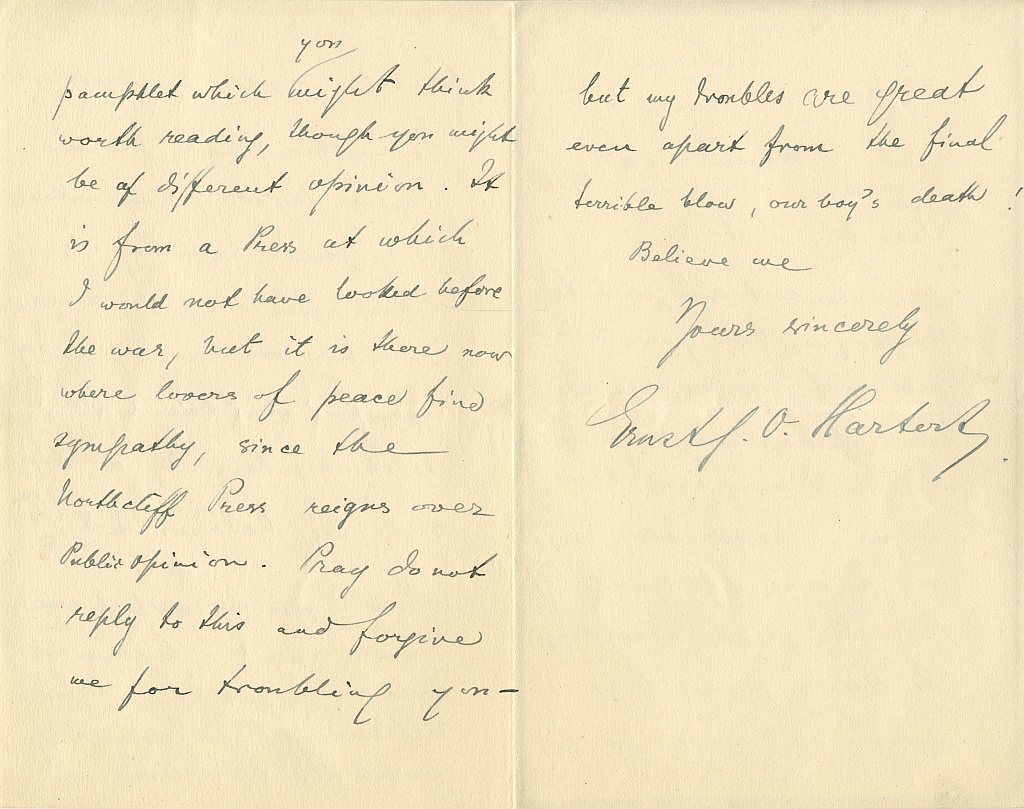 you
pamphlet which might think
worth reading, though you might
be of different opinion. It
is from a Press at which
I would not have looked before
the war, but it is there now
where lovers of peace find
sympathy, since the
Northcliff Press reigns over
Public opinion. Pray do not
reply to this and forgive
me for troubling you—
but my troubles are great
even apart from the final
terrible blow, our boy's death!
Believe me
Yours sincerely
Ernst J. O. Hartert.